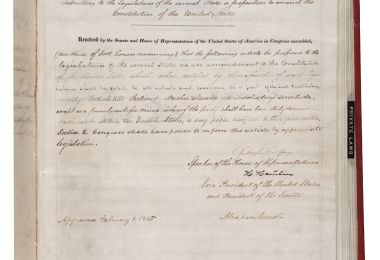 Submitting to the legislatures of the several States a proposition to amend the
Constitution of the United States
Resolved by the Senate and House of Representatives of the United States of America in Congress assembled,
(two-thirds of both houses concurring) that the following article be proposed to the
legislatures of the several States as an amendment to the constitution
of the United States, which, when ratified by three-fourths of said legis-
latures shall be valid, to all intents and purposes, as a part of the said constitution
namely: Article XIII. Section 1. Neither slavery nor involuntary servitude,
except as a punishment for crime whereof the party shall have been duly
convicted, shall exist within the United States, or any place subject to their jurisdiction.
Section 2. Congress shall have power to enforce this article by appropriate
legislation.
Speaker of the House of Representatives
H. Hamlin
Vice President of the United States
and President of the Senate
Approved February 1, 1865.
Abraham Lincoln
PRIVATE LAWS